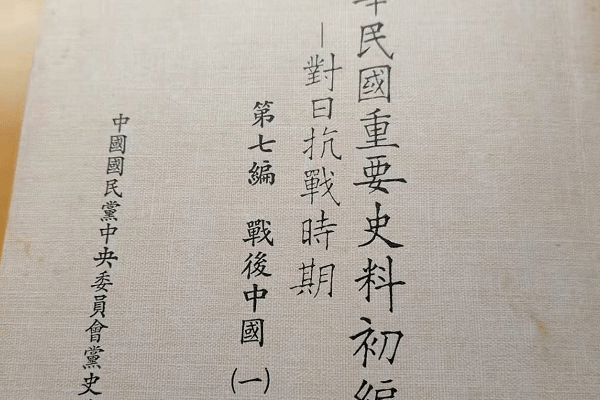 華民國重要史料初編
—對日抗戰時期
第七編　戰後中國(一)
中國國民黨中央委員會黨史